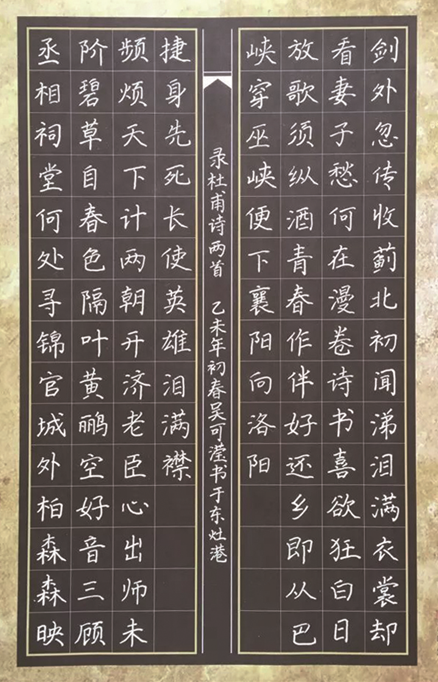 剑外忽传收蓟北初闻涕泪满衣裳却
看妻子愁何在漫卷诗书喜欲狂白日
放歌须纵酒青春作伴好还乡即从巴
峡穿巫峡便下襄阳向洛阳
丞相祠堂何处寻锦官城外柏森森映
阶碧草自春色隔叶黄鹂空好音三顾
频烦天下计两朝开济老臣心出师未
捷身先死长使英雄泪满襟
录杜甫诗两首 乙未年初春吴可滢书于东灶港